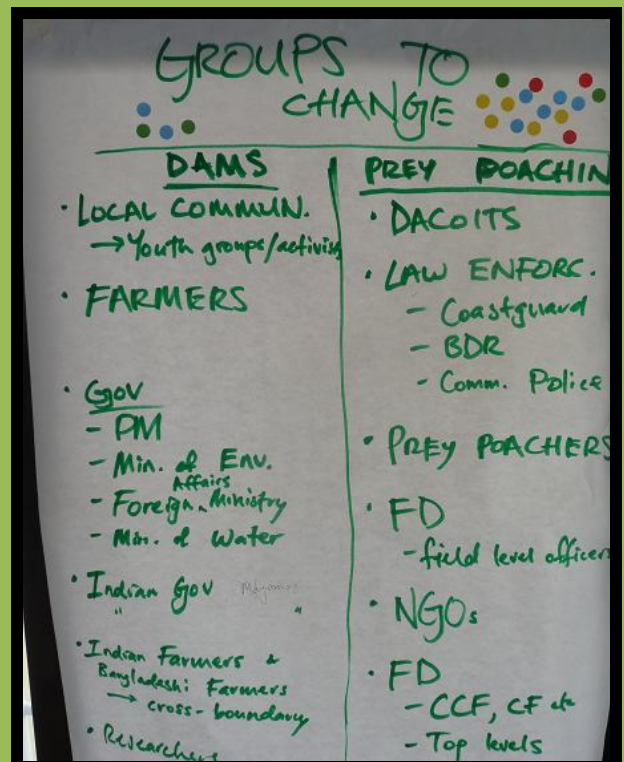 GROUPS TO
CHANGE
DAMS
· LOCAL COMMUN.
→ Youth groups/activis
· FARMERS
· Gov
- PM
- Min. of Env.
Affairs
- Foreign ^ Ministry
- Min. of Water
· Indian Gov
" "
· Indian Farmers &
Bangladeshi Farmers
→ cross-boundary
· Researchers
PREY POACHIN
· DACOITS
· LAW ENFORC.
- Coastguard
- BDR
- Comm. Police
· PREY POACHERS
· FD
- field level officers
· NGOs
· FD
- CCF, CF etc
- Top levels